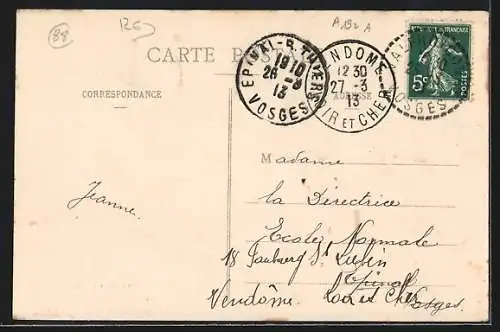 88
A 132 A
CARTE POSTALE
EPINAL - R. THIERS
19 10
26 - 3
13
VOSGES
VENDOME
12 30
27 - 3
13
LOIR ET CHER
VOSGES
FRANÇAISE
5c
POSTES
CORRESPONDANCE
ADRESSE
Madame
la Directrice
Ecole Normale
18 Faubourg St Lubin
Epinal
Vendôme. Loir et Cher Vosges.
Jeanne.